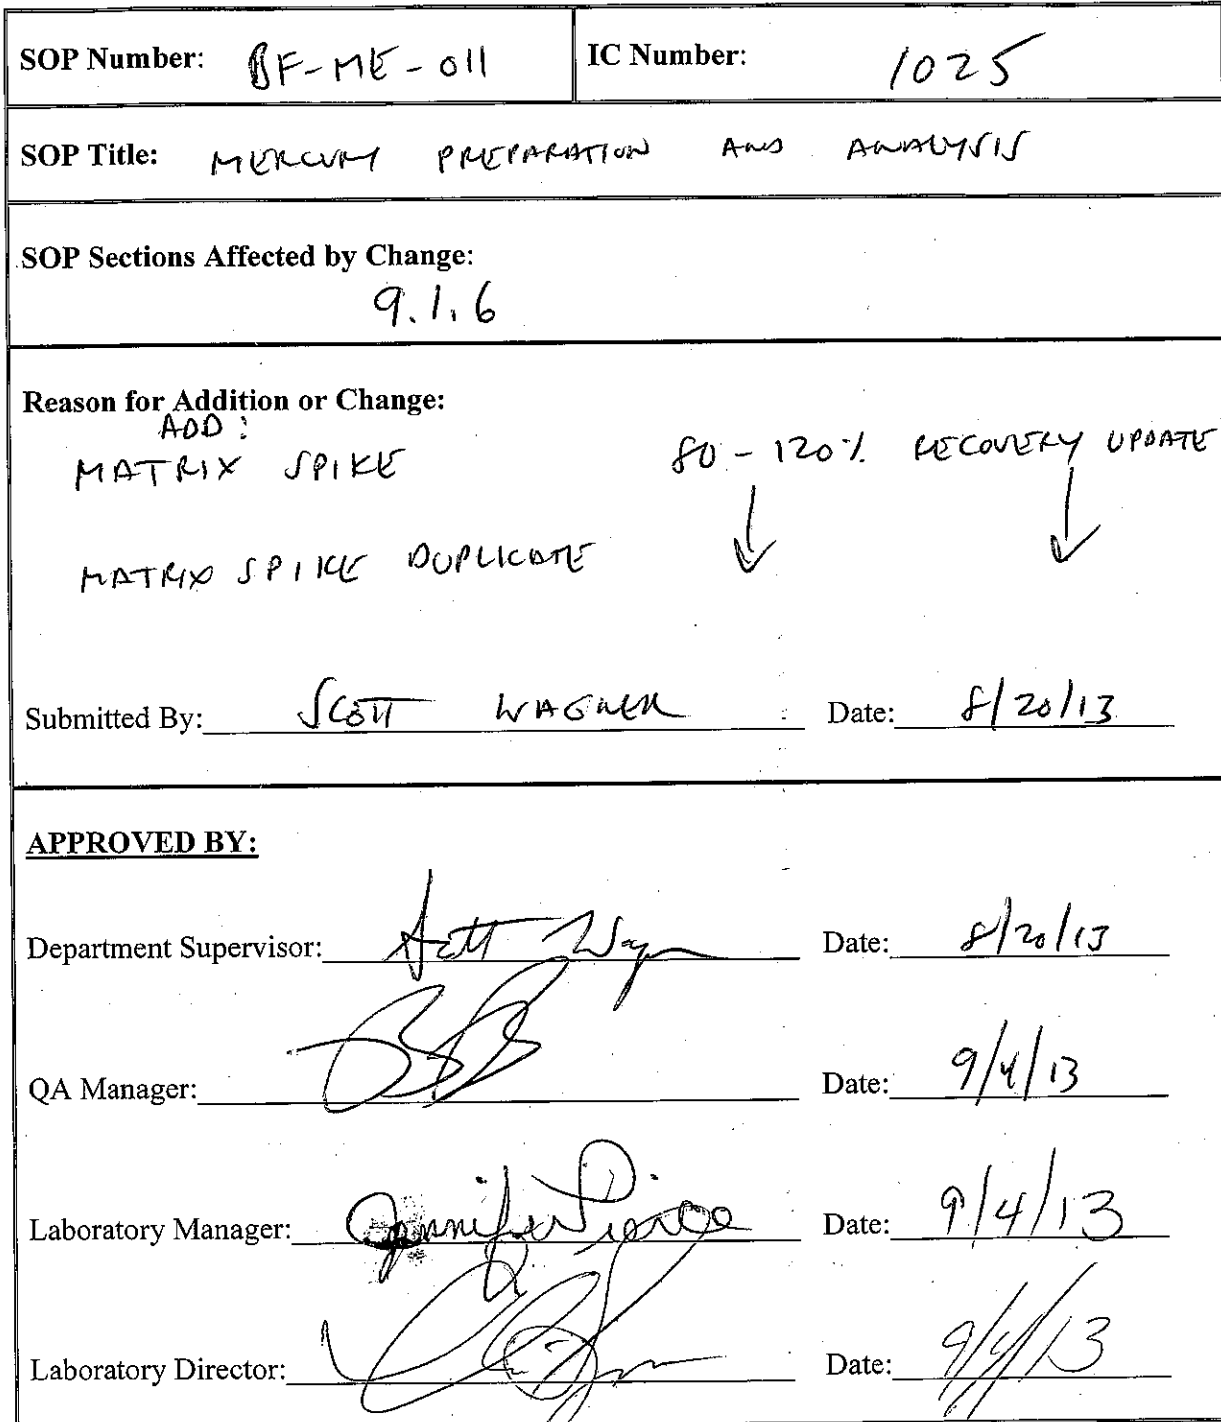 SOP Number: BF-ME-011 IC Number: 1025
SOP Title: MERCURY PREPARATION AND ANALYSIS
SOP Sections Affected by Change:
9.1.6
Reason for Addition or Change:
ADD:
MATRIX SPIKE 80-120% RECOVERY UPDATE
MATRIX SPIKE DUPLICATE
Submitted By: SCOTT WAGNER Date: 8/20/13
APPROVED BY:
Department Supervisor: Scott Wagner Date: 8/20/13
QA Manager: Date: 9/4/13
Laboratory Manager: Jennifer Pierce Date: 9/4/13
Laboratory Director: Date: 9/4/13